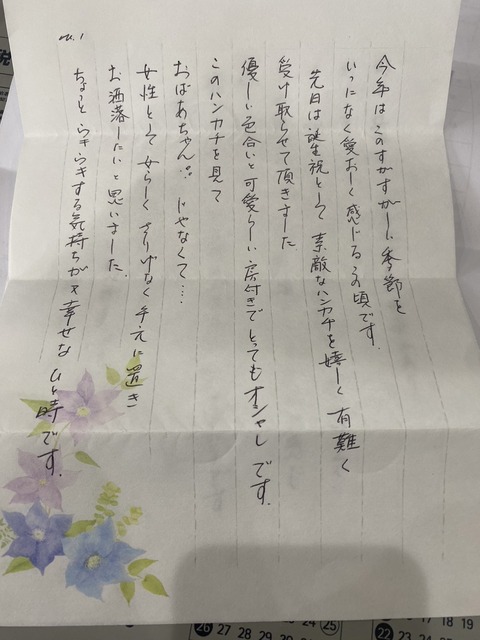 No.1
今年はこのすがすがしい季節を
いつになく愛おしく感じるこの頃です。
先日は誕生祝として素敵なハンカチを嬉しく有難く
受け取らせて頂きました
優しい色合いと可愛らしい房付きでとってもオシャレです。
このハンカチを見て
おばあちゃん じゃなくて…
女性として女らしくさりげなく手元に置き
お洒落したいと思いました。
ちょっとうきうきする気持ちが又幸せなひと時です。
26 27 28 29
22 23 24 25 26